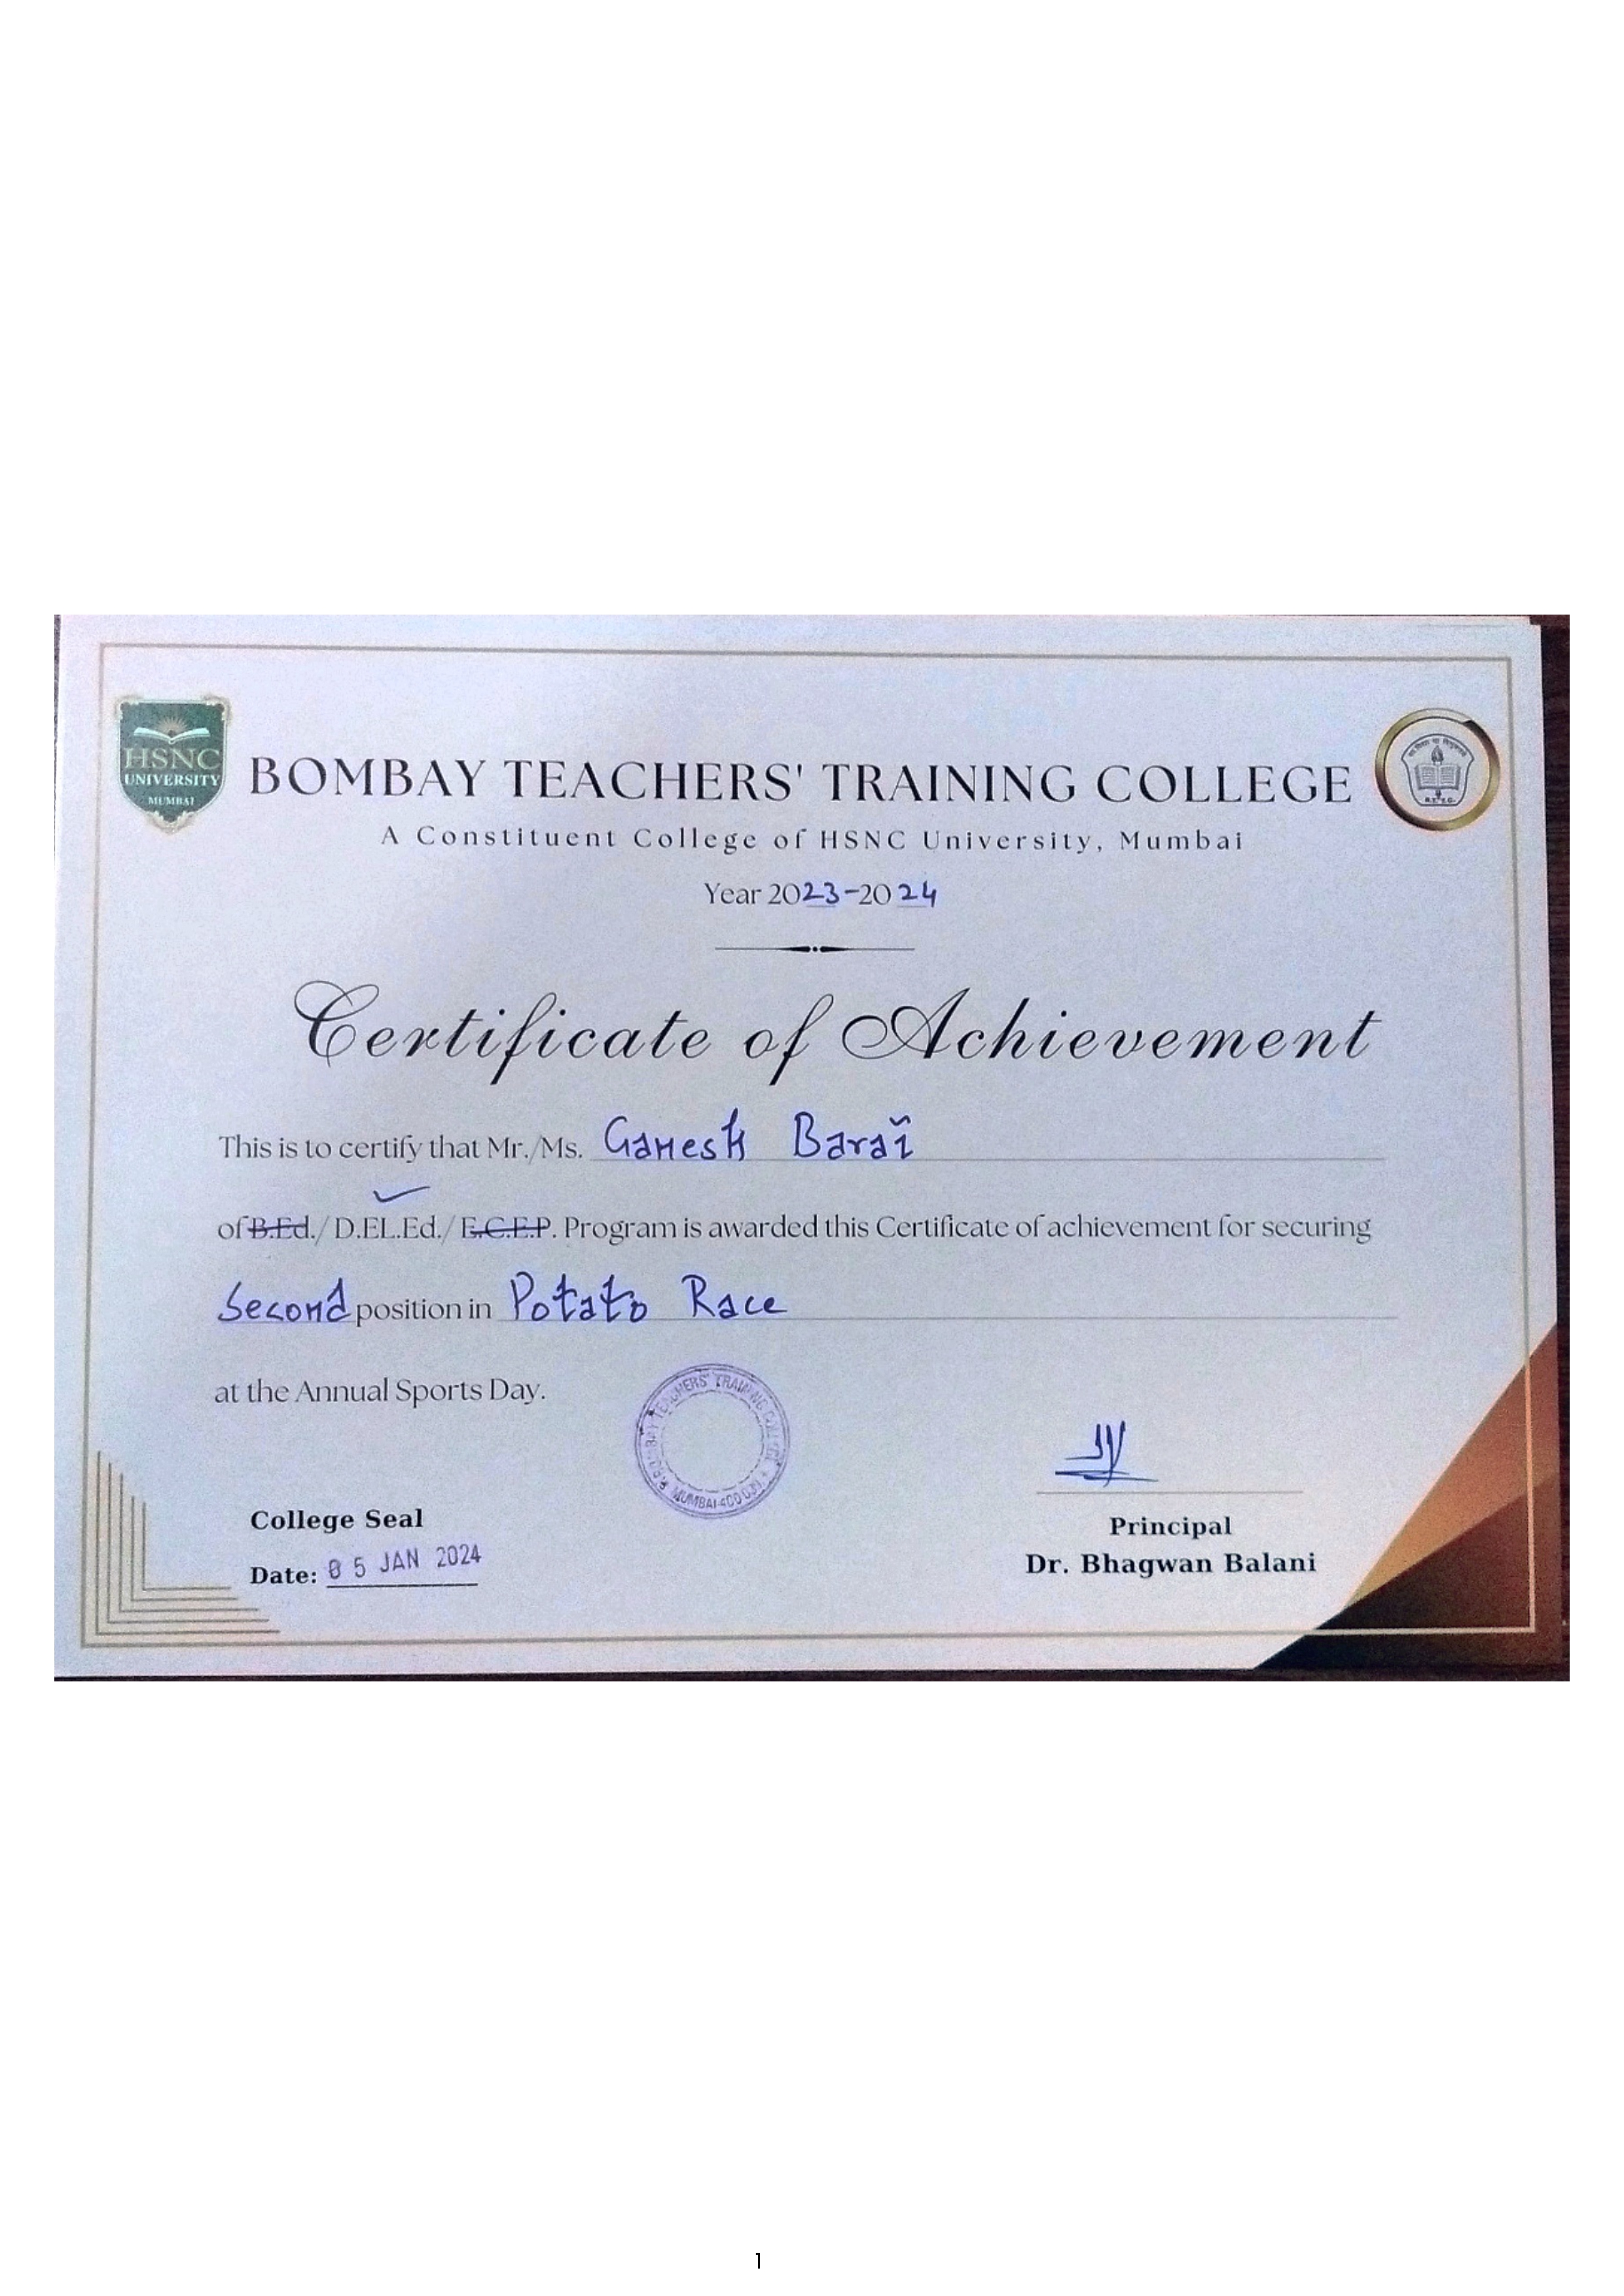 HSNC
UNIVERSITY
MUMBAI
BOMBAY TEACHERS' TRAINING COLLEGE
A Constituent College of HSNC University, Mumbai
Year 2023-2024
Certificate of Achievement
This is to certify that Mr./Ms. Ganesh Barai
of B.Ed./ D.EL.Ed./ E.C.E.P. Program is awarded this Certificate of achievement for securing
Second position in Potato Race
at the Annual Sports Day.
BOMBAY TEACHERS' TRAINING COLLEGE
MUMBAI
College Seal
Date: 05 JAN 2024
Principal
Dr. Bhagwan Balani
1